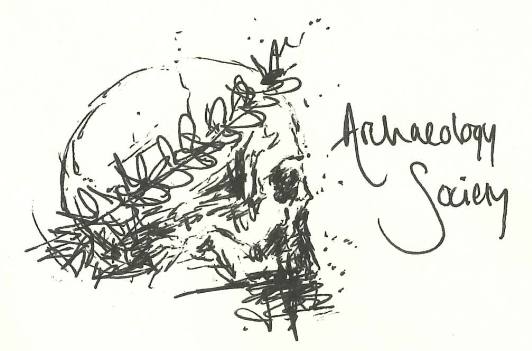 Archaeology
Society